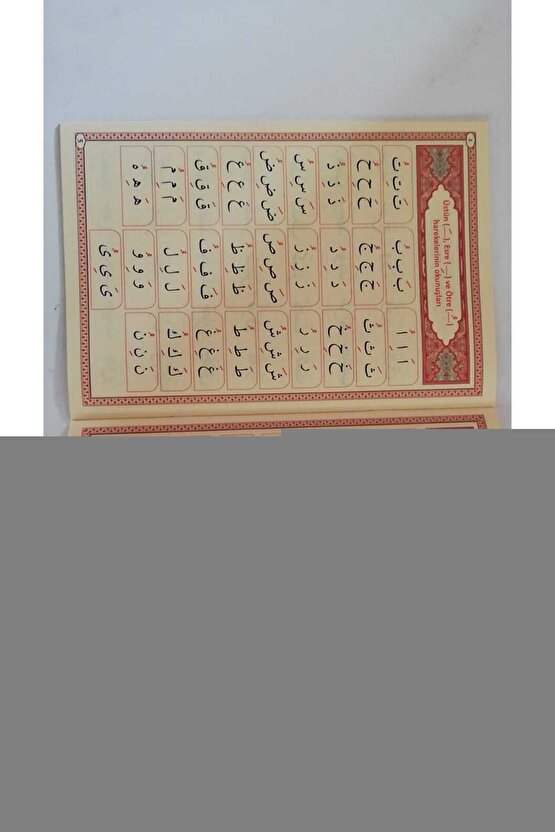 Üstün (ـَ), Esre (ـِ) ve Ötre (ـُ)
harekelerinin okunuşları
اَ اِ اُ بَ بِ بُ تَ تِ تُ
ثَ ثِ ثُ جَ جِ جُ حَ حِ حُ
خَ خِ خُ دَ دِ دُ ذَ ذِ ذُ
رَ رِ رُ زَ زِ زُ سَ سِ سُ
شَ شِ شُ صَ صِ صُ ضَ ضِ ضُ
طَ طِ طُ ظَ ظِ ظُ عَ عِ عُ
غَ غِ غُ فَ فِ فُ قَ قِ قُ
كَ كِ كُ لَ لِ لُ مَ مِ مُ
نَ نِ نُ وَ وِ وُ هَ هِ هُ
ىَ ىِ ىُ
5